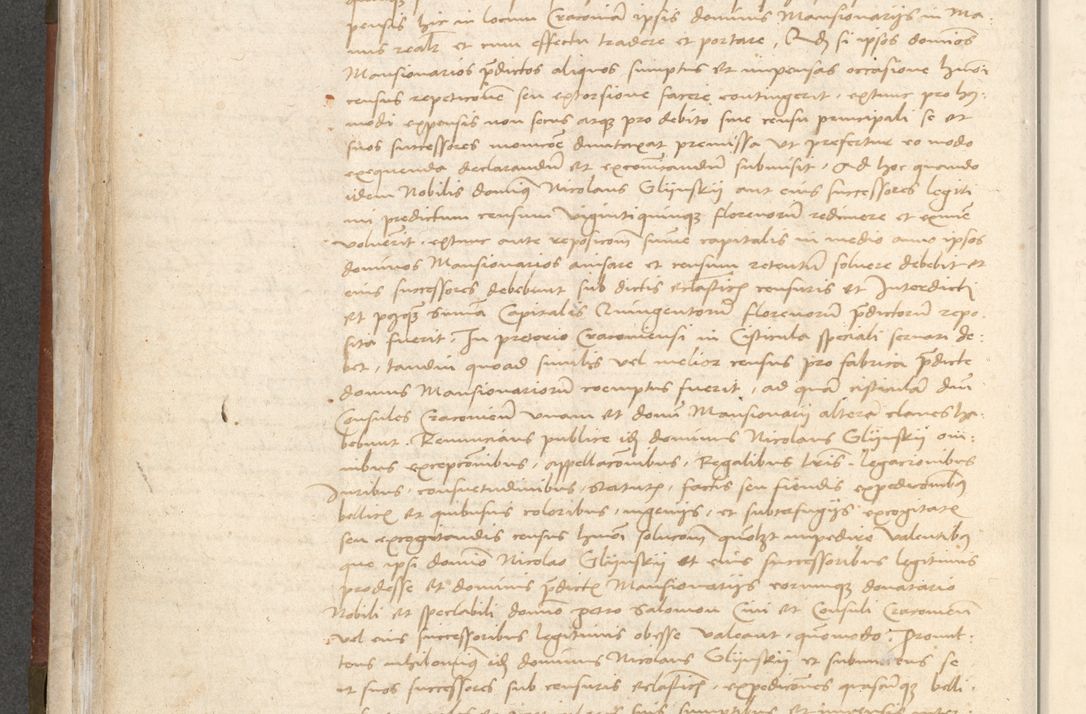 pensis hic in locum Cracoviam ipsis dominis Mansionarijs in Ma-
nus realr et cum effectu tradere et portare, Qđ si ipsos dominos
Mansionarios p̄dictos aliquos sumptus et impensas occasione huōi
census repeticōne seu extorsione facere contingerit, extunc pro hui-
modi expensis non secus atqꝫ pro debito sine censu principali se et
suos successores monicōe duntaxat premissa ut prefertur eo modo
exequenda declarandum et excom̄icandum submisit, Ad hoc quando
idem Nobilis dominus Nicolaus Glijnskij aut eius successores legiti
mi predictum censum vigintiquinqꝫ florenorum redimere et eximē
voluerit, extunc ante reposicōm sūme capitalis in medio anno ipsos
dominos Mansionarios avisare et censum retentum solvere debebit et
eius successores debebunt sub dictis eclāsticis censuris et Interdicti
et postqꝫ summa Capitalis Quingentorum florenorum p̄dictorum repo-
sita fuerit, In pretorio Cracoviensi in Cisticula speciali servari de-
bet, tamdiu quoad similis vel melior census pro fabrica p̄dicte
domus Mansionariorum coemptus fuerit, ad quam cisticulam dn̄i
Consules Cracovien̄ unam et domini Mansionarij alteram claves ha-
bebunt. Renuncians publice idem dominus Nicolaus Glijnskij om-
nibus excepcōnibus, appellacōnibus, Regalibus lr̄is, legacionibus
Iuribus, consuetudinibus, statutis, factis seu fiendis expedicōnibus
bellicis et quibusvis coloribus, ingenijs, et subterfugijs excogitatis
seu excogitandis census huōi solucōm quōlꝫt impedire valentibus
que ipsi domino Nicolao Glijnskij et eius successoribus legitimis
prodesse et dominis p̄dictis Mansionarijs eorumqꝫ donatario
Nobili et spectabili domino petro Salomon Civi et Consuli Cracovien̄
vel eius successoribus legitimis obesse valeant, quōmodo. Promit-
tens nihilominus idem dominus Nicolaus Glijnskij et submittens se
et suos successores sub censuris eclāsticis, expedicōnes quascunqꝫ belli-